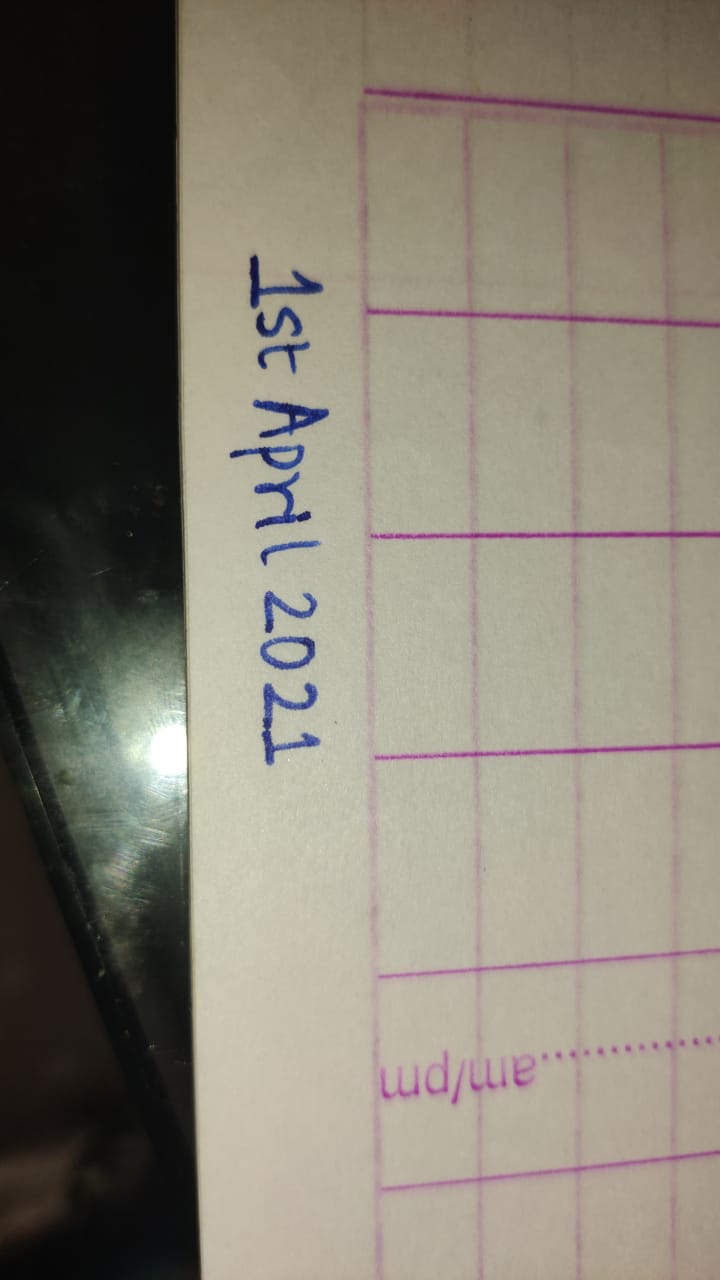 1st April 2021
..........am/pm